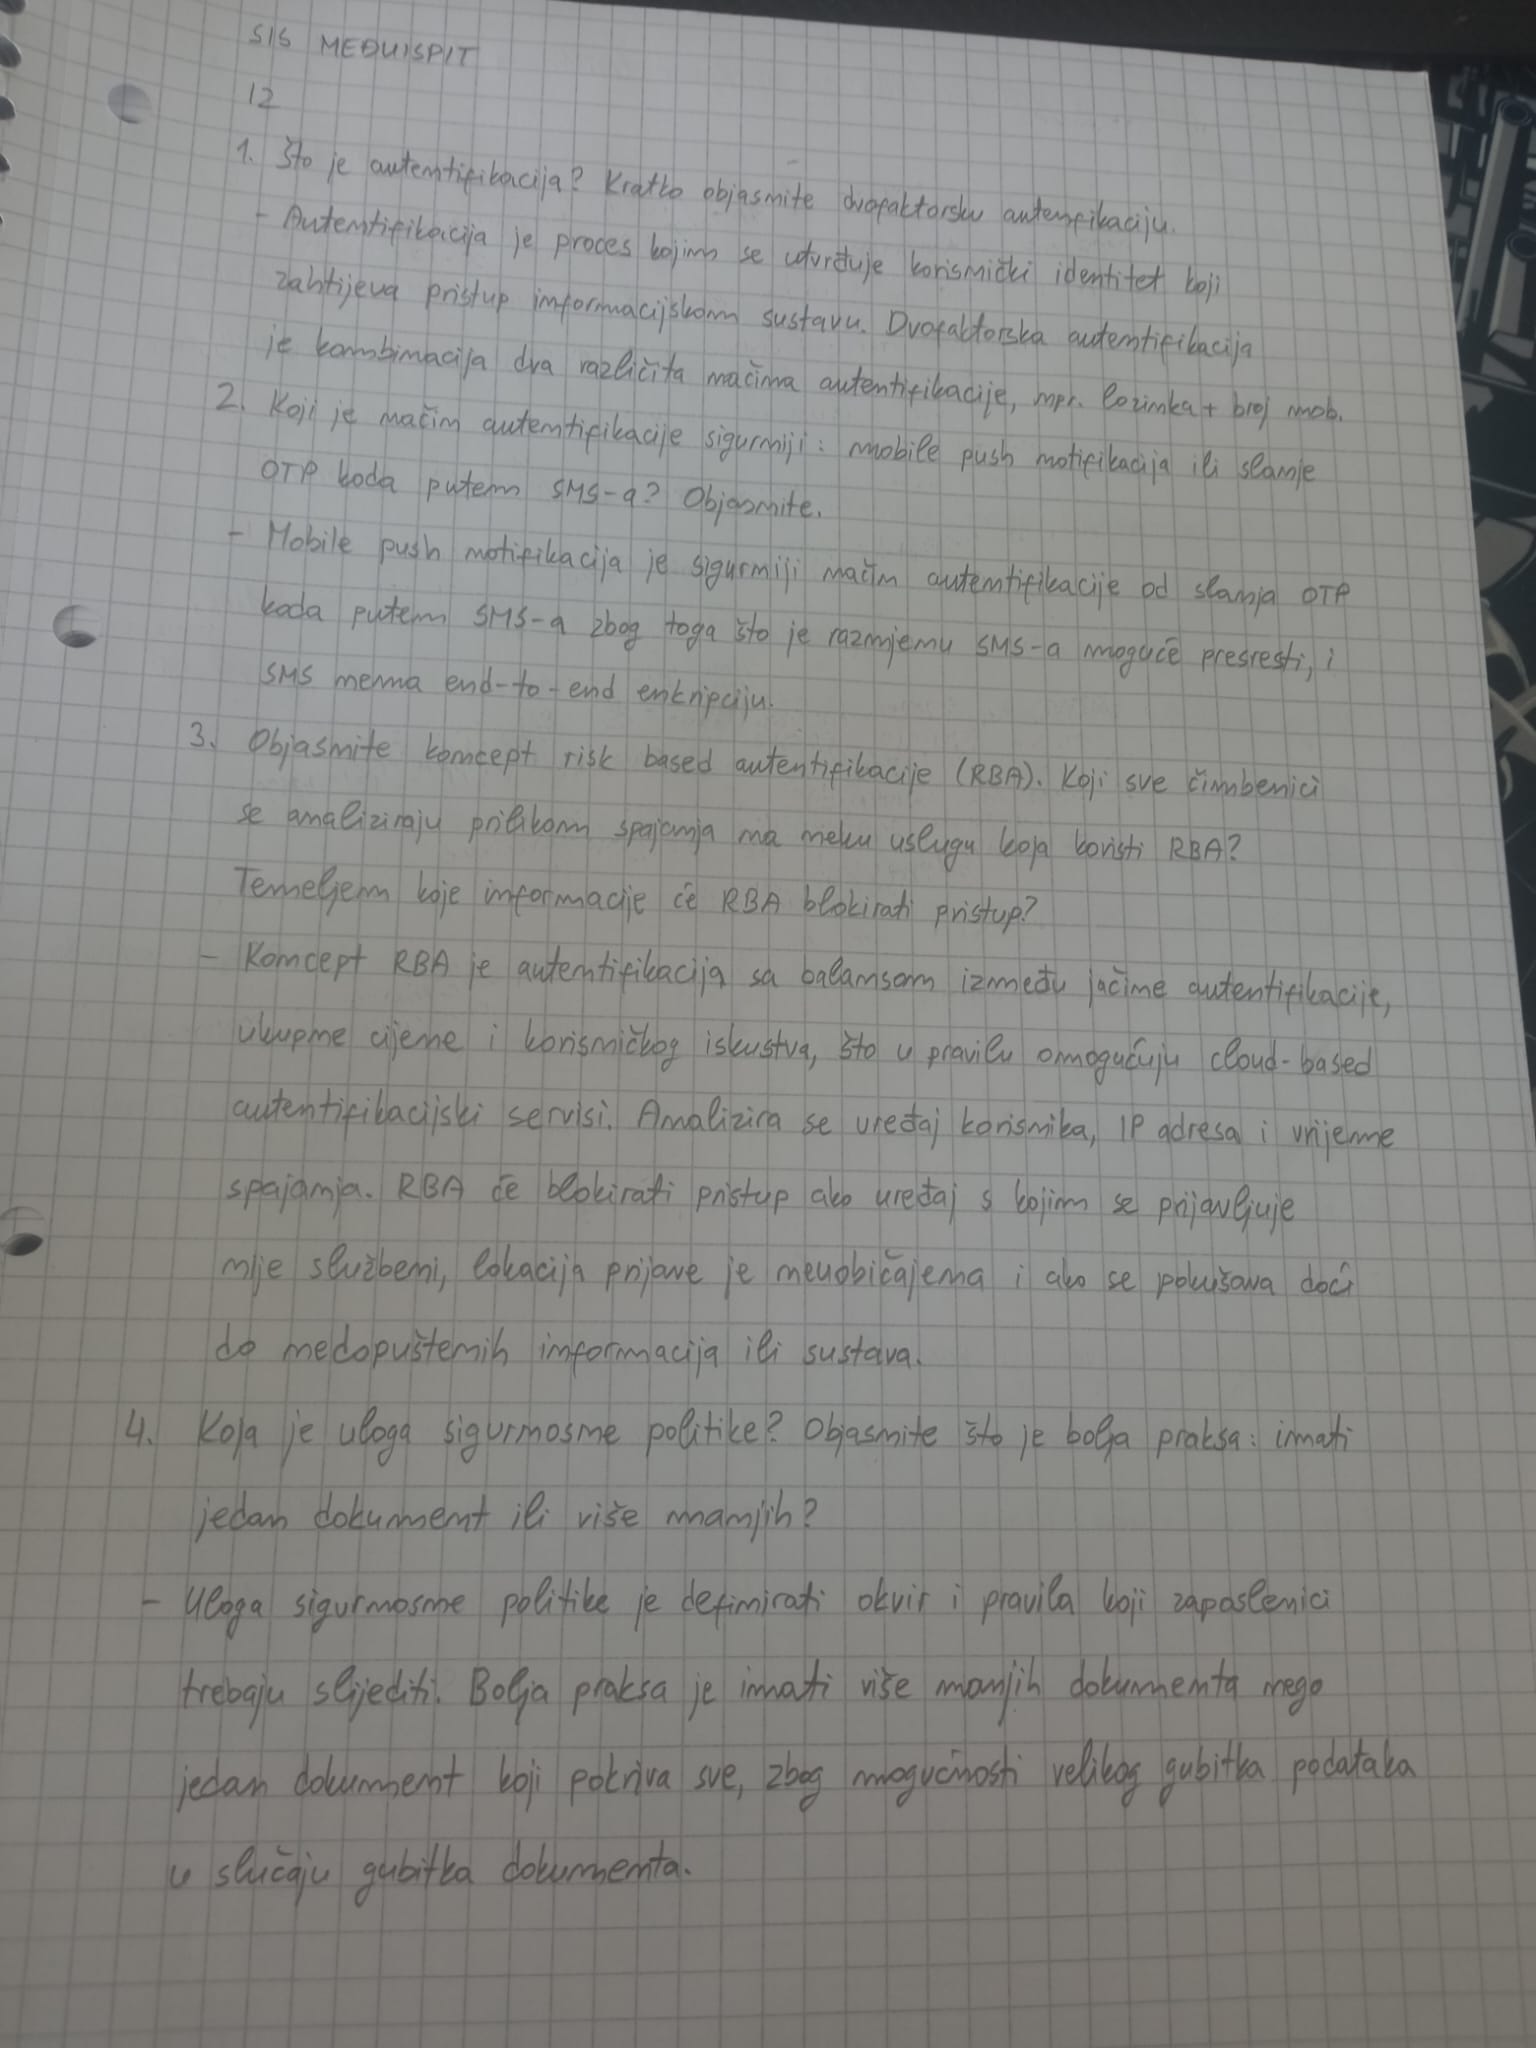 SIS MEĐUISPIT
12
1. Što je autentifikacija? Kratko objasnite dvofaktorsku autenfikaciju.
- Autentifikacija je proces kojim se utvrđuje korisnički identitet koji
zahtijeva pristup informacijskom sustavu. Dvofaktorska autentifikacija
je kombinacija dva različita načina autentifikacije, npr. lozinka + broj mob.
2. Koji je način autentifikacije sigurniji: mobile push notifikacija ili slanje
OTP koda putem SMS-a? Objasnite.
- Mobile push notifikacija je sigurniji način autentifikacije od slanja OTP
koda putem SMS-a zbog toga što je razmjenu SMS-a moguće presresti, i
SMS nema end-to-end enkripciju.
3. Objasnite koncept risk based autentifikacije (RBA). Koji sve čimbenici
se analiziraju prilikom spajanja na neku uslugu koja koristi RBA?
Temeljem koje informacije će RBA blokirati pristup?
- Koncept RBA je autentifikacija sa balansom između jačine autentifikacije,
ukupne cijene i korisničkog iskustva, što u pravilu omogućuju cloud-based
autentifikacijski servisi. Analizira se uređaj korisnika, IP adresa i vrijeme
spajanja. RBA će blokirati pristup ako uređaj s kojim se prijavljuje
nije službeni, lokacija prijave je neuobičajena i ako se pokušava doći
do nedopuštenih informacija ili sustava.
4. Koja je uloga sigurnosne politike? Objasnite što je bolja praksa: imati
jedan dokument ili više manjih?
- Uloga sigurnosne politike je definirati okvir i pravila koji zaposlenici
trebaju slijediti. Bolja praksa je imati više manjih dokumenta nego
jedan dokument koji pokriva sve, zbog mogućnosti velikog gubitka podataka
u slučaju gubitka dokumenta.